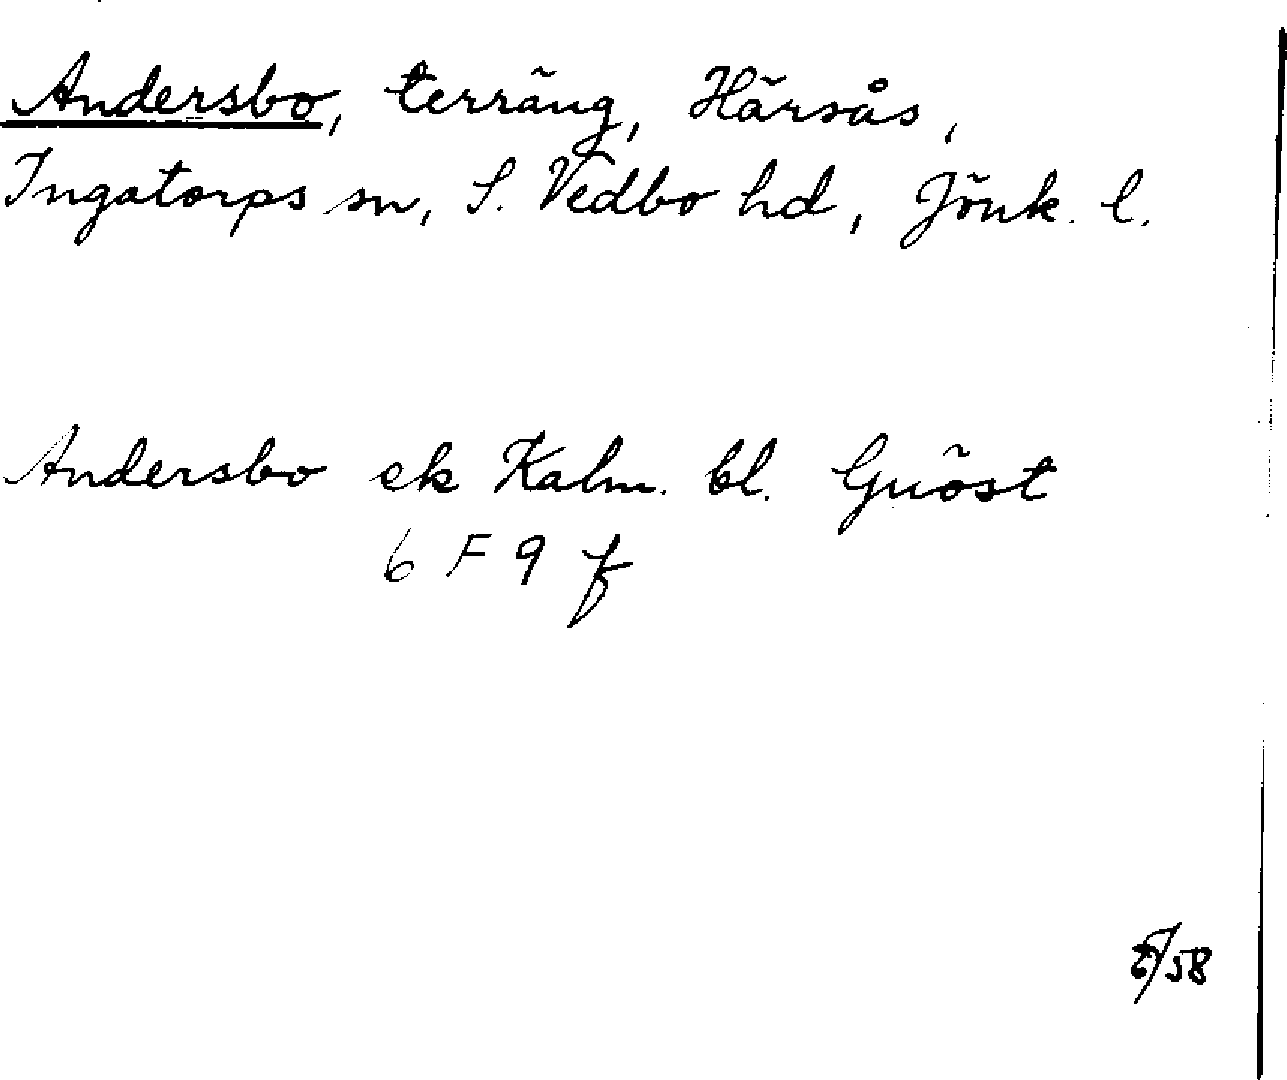 Andersbo, terräng, Härsås,
Ingatorps sn, S. Vedbo hd, Jönk. l.
Andersbo ek Kalm. bl. Gnöst
6 F 9 f
/58